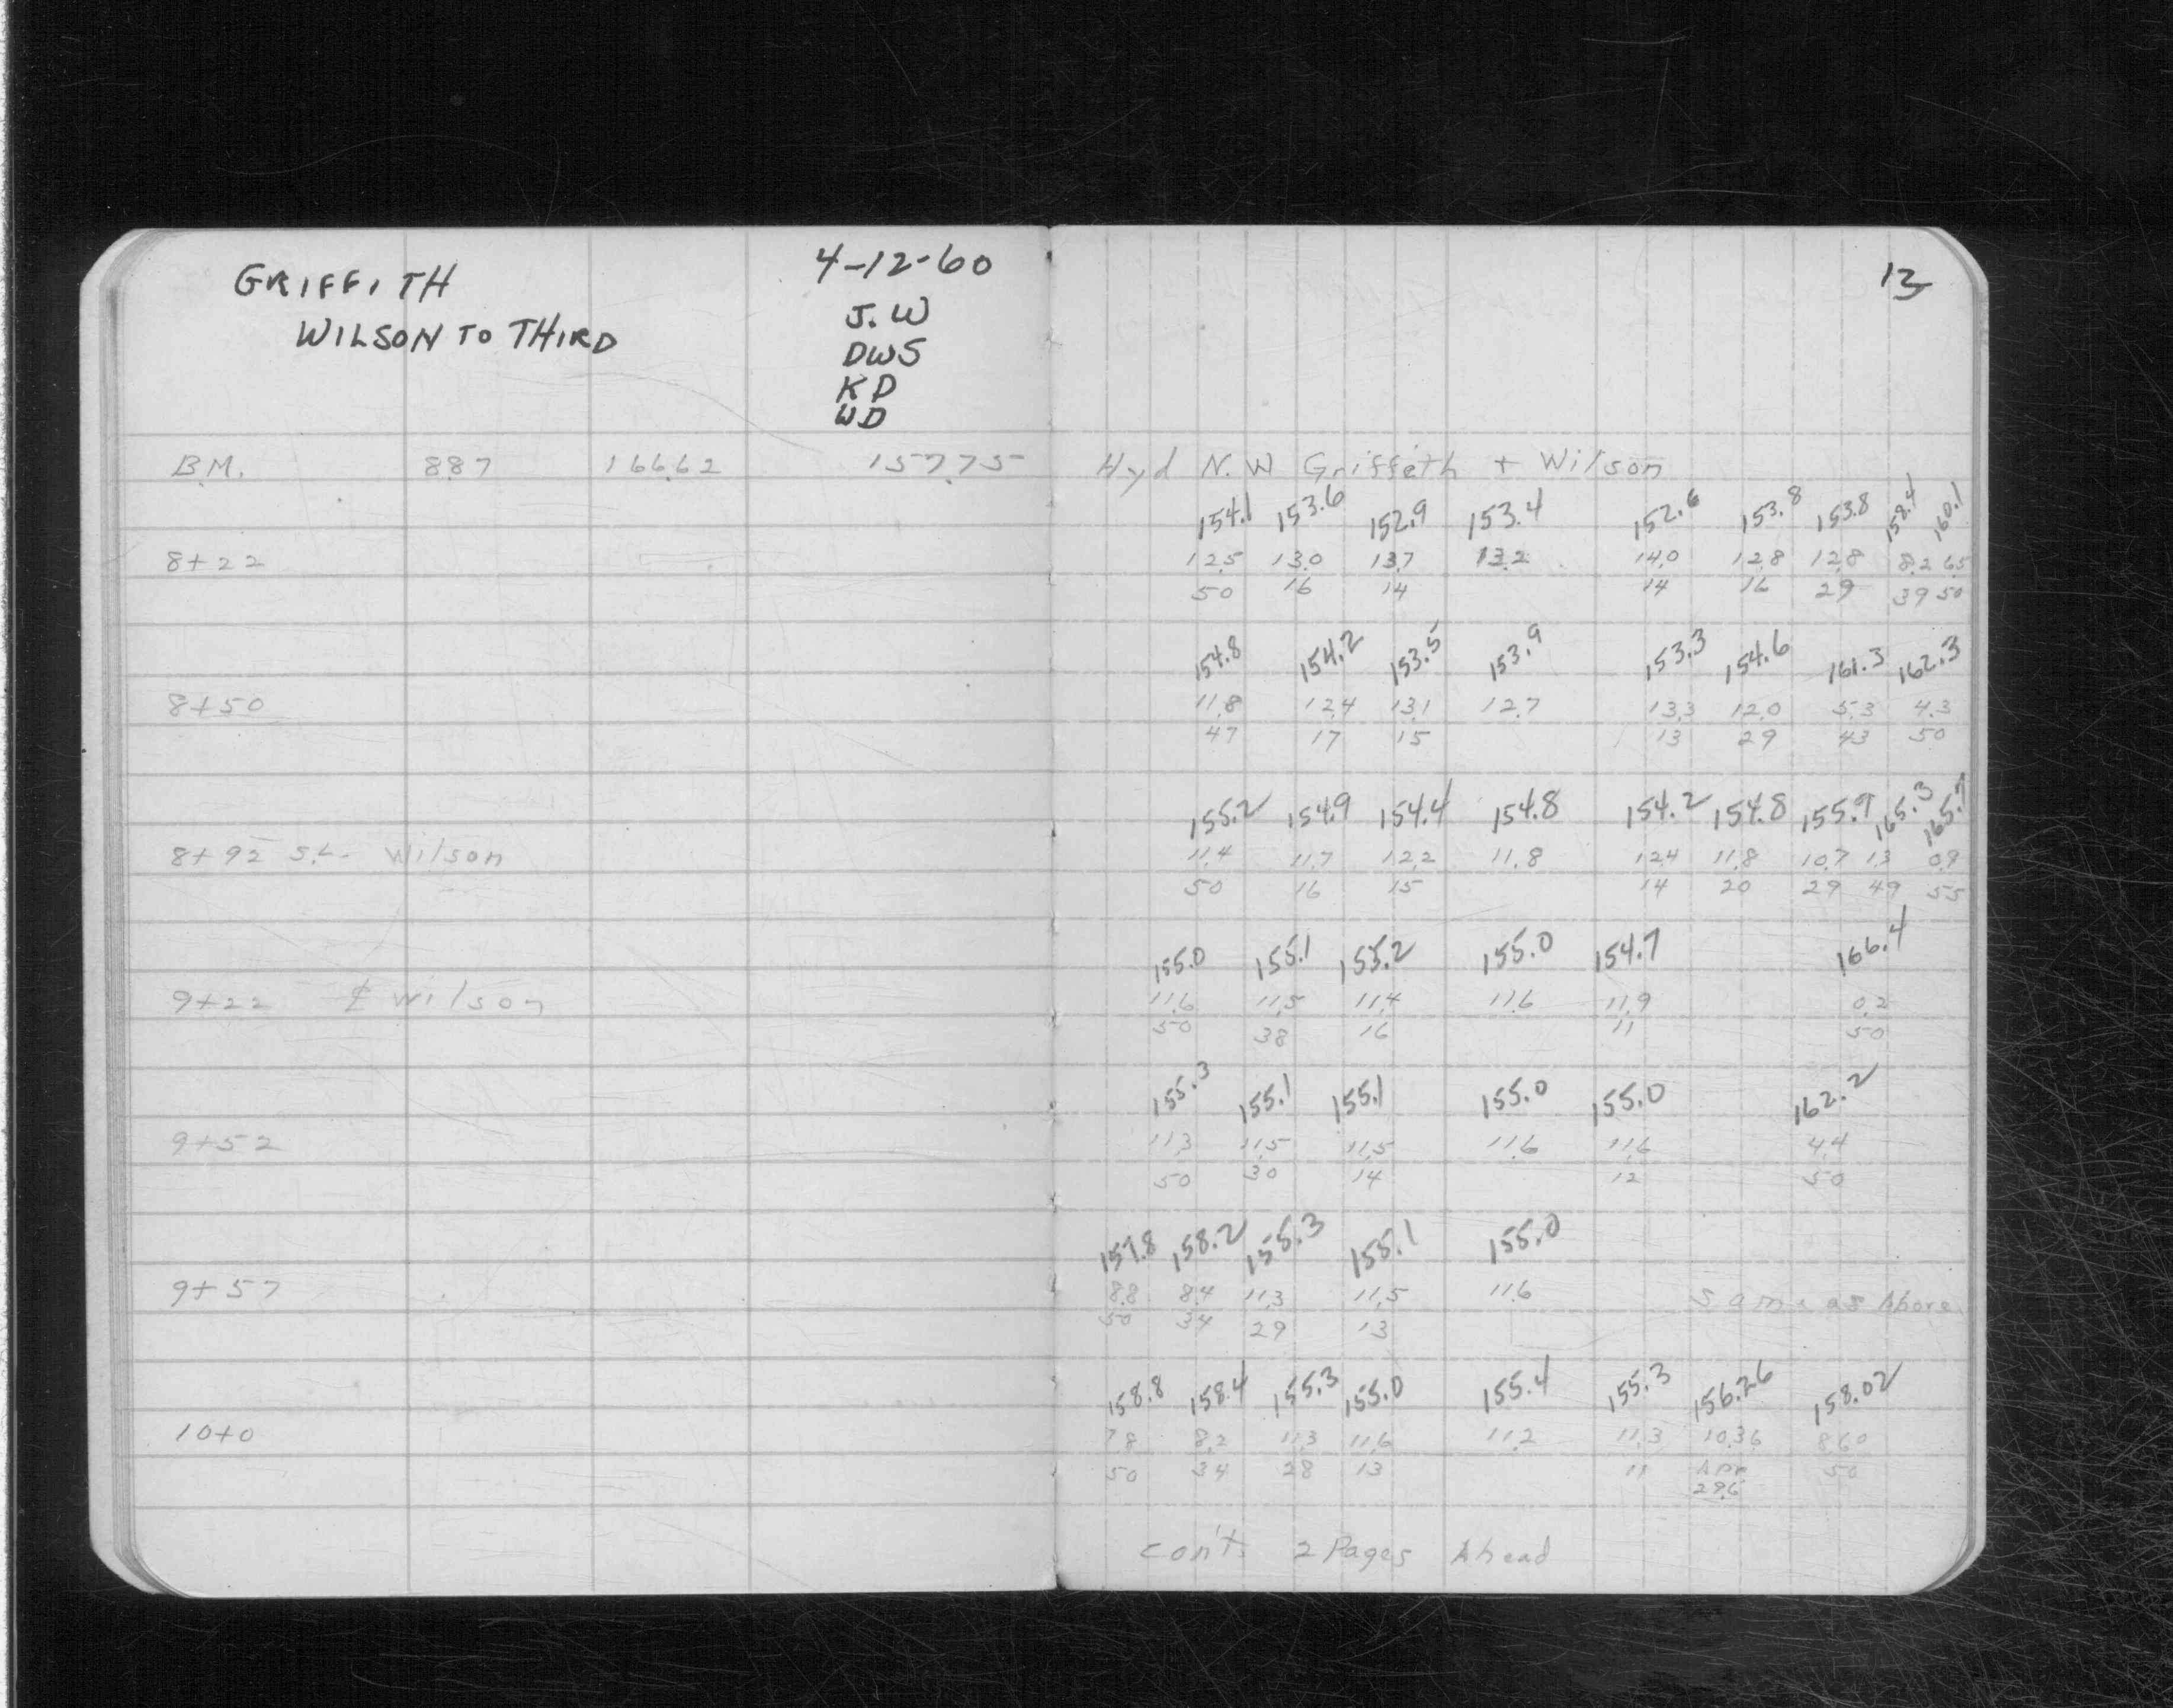 GRIFFITH
WILSON TO THIRD
4-12-60
J.W
DWS
KD
WD
13
B.M. 8.87 166.62 157.75 Hyd N.W Griffeth + Wilson
154.1 153.6 152.9 153.4 152.6 153.8 153.8 158.4 160.1
8+22 12.5 13.0 13.7 13.2 14.0 12.8 12.8 8.2 6.5
50 16 14 14 16 29 39 50
154.8 154.2 153.5 153.9 153.3 154.6 161.3 162.3
8+50 11.8 12.4 13.1 12.7 13.3 12.0 5.3 4.3
47 17 15 13 29 43 50
155.2 154.9 154.4 154.8 154.2 154.8 155.9 165.3 165.7
8+92 S.L. Wilson 11.4 11.7 12.2 11.8 12.4 11.8 10.7 1.3 0.9
50 16 15 14 20 29 49 55
155.0 155.1 155.2 155.0 154.7 166.4
9+22 ℄ Wilson 11.6 11.5 11.4 11.6 11.9 0.2
50 38 16 11 50
155.3 155.1 155.1 155.0 155.0 162.2
9+52 11.3 11.5 11.5 11.6 11.6 4.4
50 30 14 12 50
157.8 158.2 155.3 155.1 155.0
9+57 8.8 8.4 11.3 11.5 11.6 Same as Above
50 34 29 13
158.8 158.4 155.3 155.0 155.4 155.3 156.26 158.02
10+0 7.8 8.2 11.3 11.6 11.2 11.3 10.36 8.60
50 34 28 13 11 Apr 50
29.6
con't. 2 Pages Ahead